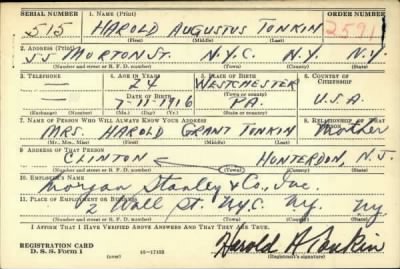 SERIAL NUMBER 1. NAME (Print) ORDER NUMBER
515 HAROLD AUGUSTUS TONKIN 2591
(First) (Middle) (Last)
2. ADDRESS (Print)
55 MORTON ST. N.Y.C. N.Y. N.Y.
(Number and street or R. F. D. number) (Town) (County) (State)
3. TELEPHONE 4. AGE IN YEARS 5. PLACE OF BIRTH 6. COUNTRY OF CITIZENSHIP
— 24 WESTCHESTER
DATE OF BIRTH (Town or county)
— 7-11-1916 PA. U.S.A.
(Exchange) (Number) (Mo.) (Day) (Yr.) (State or country)
7. NAME OF PERSON WHO WILL ALWAYS KNOW YOUR ADDRESS 8. RELATIONSHIP OF THAT PERSON
MRS. HAROLD GRANT TONKIN Mother
(Mr., Mrs., Miss) (First) (Middle) (Last)
9. ADDRESS OF THAT PERSON
CLINTON HUNTERDON, N.J.
(Number and street or R. F. D. number) (Town) (County) (State)
10. EMPLOYER'S NAME
Morgan Stanley & Co., Inc.
11. PLACE OF EMPLOYMENT OR BUSINESS
2 Wall St. N.Y.C. N.Y. N.Y.
(Number and street or R. F. D. number) (Town) (County) (State)
I AFFIRM THAT I HAVE VERIFIED ABOVE ANSWERS AND THAT THEY ARE TRUE.
REGISTRATION CARD
D. S. S. Form 1 (over) 16—17105 Harold A Tonkin
(Registrant's signature)